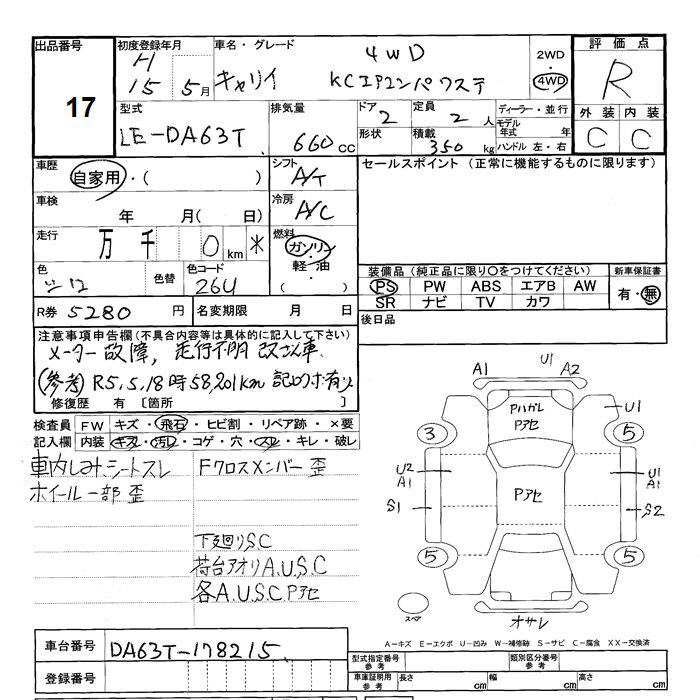 出品番号 17
初度登録年月 H 15 5月
車名・グレード キャリイ 4WD KCエアコンパワステ
2WD・4WD
評価点 R
外装 内装
C C
型式 LE-DA63T
排気量 660 CC
ドア 2 形状
定員 2 人
積載 350 kg
ディーラー・並行
モデル年式 年
ハンドル 左・右
車歴 自家用・( )
シフト A/T
セールスポイント (正常に機能するものに限ります)
車検 年 月( 日)
冷房 A/C
走行 万 千 0 km *
燃料 ガソリン・軽油・( )
色 シロ 色替
色コード 26U
装備品 (純正品に限り〇をつけてください)
PS PW ABS エアB AW
SR ナビ TV カワ
新車保証書
有・無
R券 5280 円
名変期限 月 日
後日品
注意事項申告欄(不具合内容等は具体的に記入して下さい)
メーター故障, 走行不明 改ざん車
(参考) R5,5,18時 58,201km 記録有り
修復歴 有 [箇所 ]
検査員記入欄
FW キズ・飛石・ヒビ割・リペア跡・×要
内装 キズ・汚レ・コゲ・穴・スレ・キレ・破レ
車内しみ,シートスレ
ホイール一部歪
Fクロスメンバー歪
下廻りS.C
荷台アオリA.U.S.C
各A.U.S.C Pアセ
A1 U1 A2
Pハガレ
Pアセ
U1
3 5
U2
A1
Pアセ
U1
A1
S1 S2
5 5
スペア
オサレ
A-キズ E-エクボ U-凹み W-補修跡 S-サビ C-腐食 XX-交換済
車台番号 DA63T-178215
登録番号
型式指定番号 参考
類別区分番号 参考
車庫証明用 参考
長さ cm 幅 cm 高さ cm